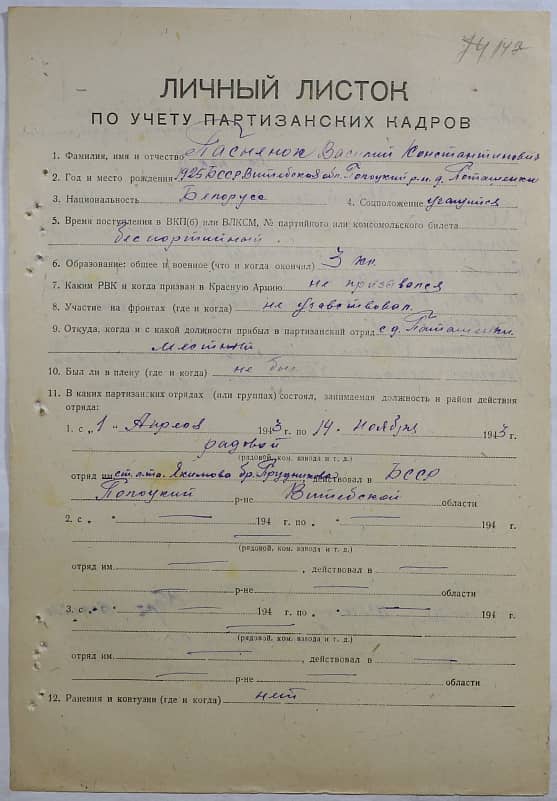 74/142
ЛИЧНЫЙ ЛИСТОК
ПО УЧЕТУ ПАРТИЗАНСКИХ КАДРОВ
1. Фамилия, имя и отчество Паснянок Василий Константинович
2. Год и место рождения 1925 БССР Витебская обл. Полоцкий р.н. д. Поташенки
3. Национальность Белорус 4. Соцположение учащийся
5. Время поступления в ВКП(б) или ВЛКСМ, № партийного или комсомольского билета
беспартийный.
6. Образование: общее и военное (что и когда окончил) 3 кл.
7. Каким РВК и когда призван в Красную Армию не призвался
8. Участие на фронтах (где и когда) не участвовал.
9. Откуда, когда и с какой должности прибыл в партизанский отряд с д. Поташенки
местный
10. Был ли в плену (где и когда) не был
11. В каких партизанских отрядах (или группах) состоял, занимаемая должность и район действия
отряда:
1. с „1" Апреля 1943 г. по 14. ноября 1943 г.
рядовой
(рядовой, ком. взвода и т. д.)
отряд им ст. л-та Якимова бр. Прудникова действовал в БССР
Полоцкий р-не Витебской области
2. с „ " 194 г. по „ " 194 г.
(рядовой, ком. взвода и т. д.)
отряд им. , действовал в
р-не области
3. с „ " 194 г. по „ " 194 г.
(рядовой, ком. взвода и т. д.)
отряд им. , действовал в
р-не области
12. Ранения и контузии (где и когда) нет